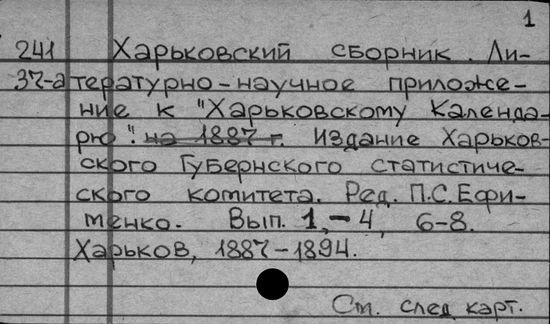 1
241 Харьковский сборник. Ли-
37-а тературно-научное приложе-
ние к "Харьковскому Календа-
рю". на 1887 г. Издание Харьков-
ского Губернского статистиче-
ского комитета. Ред. П.С. Ефи-
менко. Вып. 1,-4, 6-8.
Харьков, 1887-1894.
См. след карт.